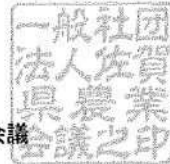 一般社団
法人佐賀
県農業
会議之印
議